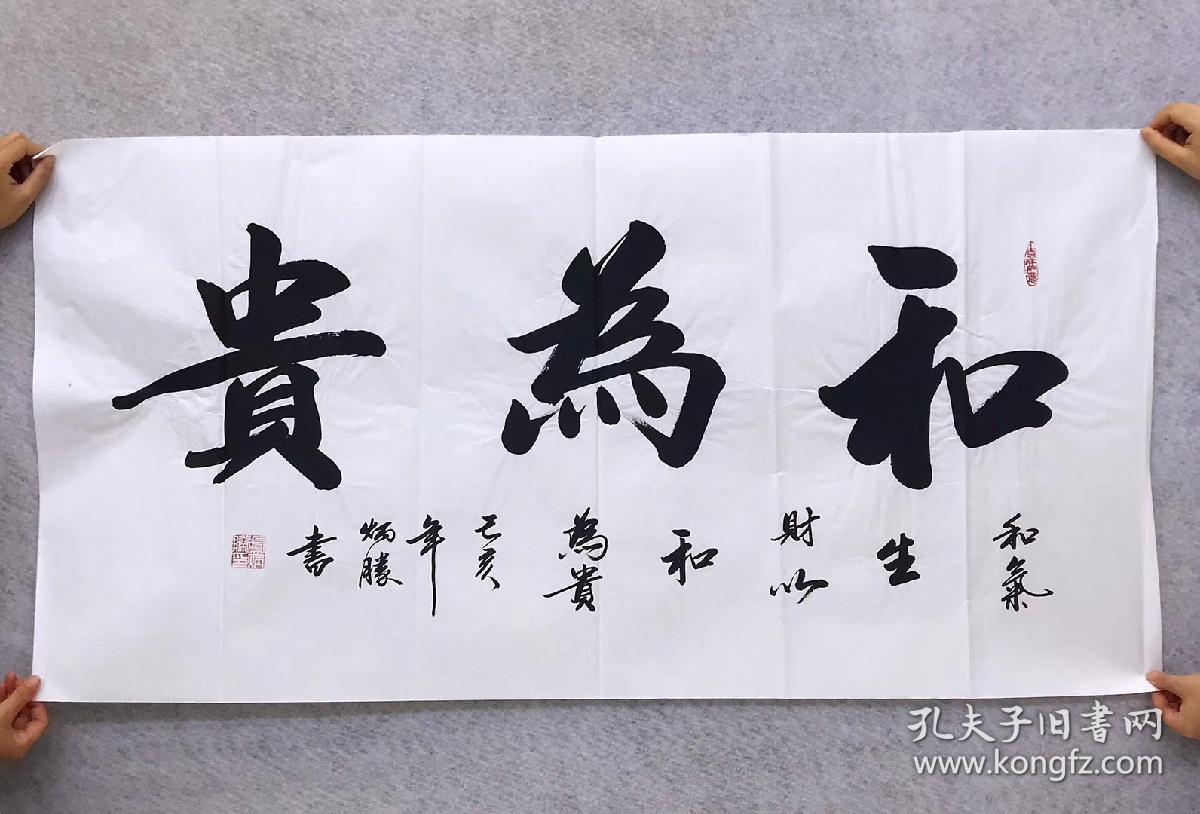 和為貴
和氣生財以和為貴己亥年炳勝書
孔夫子旧书网
www.kongfz.com